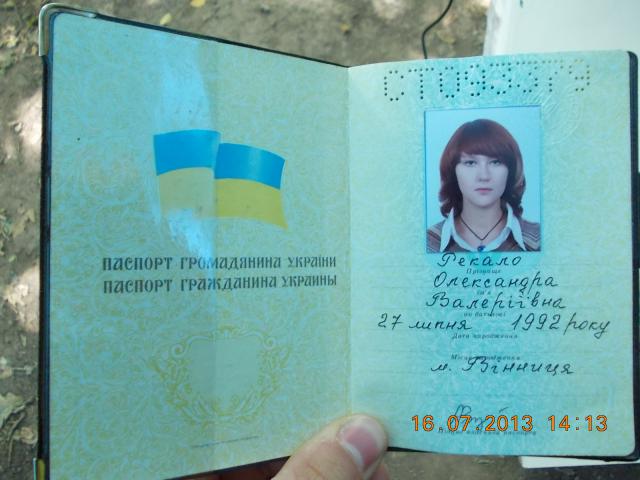 ПАСПОРТ ГРОМАДЯНИНА УКРАЇНИ
ПАСПОРТ ГРАЖДАНИНА УКРАИНЫ
Рекало
Прізвище
Олександра
Ім'я
Валеріївна
по батькові
27 липня 1992 року
Дата народження
Місце народження
м. Вінниця
16.07.2013 14:13